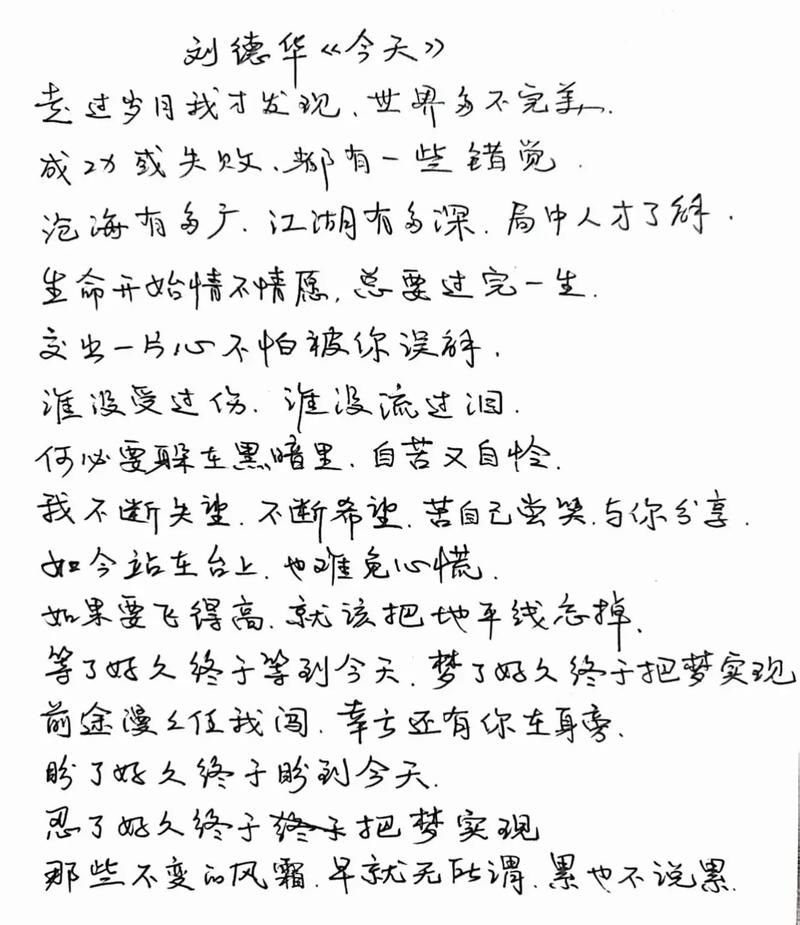 刘德华《今天》
走过岁月我才发现、世界多不完美.
成功或失败、都有一些错觉.
沧海有多广、江湖有多深.局中人才了解.
生命开始情不情愿,总要过完一生.
交出一片心不怕被你误解.
谁没受过伤.谁没流过泪.
何必要躲在黑暗里.自苦又自怜.
我不断失望.不断希望.苦自己尝笑.与你分享.
如今站在台上.也难免心慌.
如果要飞得高.就该把地平线忘掉.
等了好久终于等到今天.梦了好久终于把梦实现
前途漫々任我闯.幸亏还有你在身旁.
盼了好久终于盼到今天.
忍了好久终于把梦实现
那些不变的风霜.早就无所谓.累也不说累.